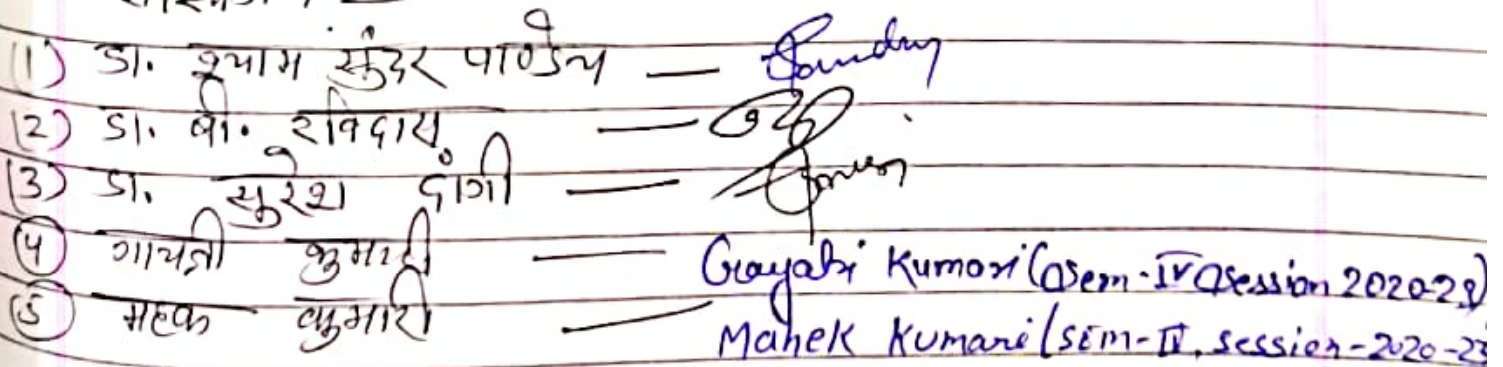 (1) डा. श्याम सुंदर पाण्डेय —
(2) डा. बी. रविदास —
(3) डा. सुरेश दांगी —
(4) गायत्री कुमारी — Gayatri Kumari (Sem-IV Session 2020-23)
(5) महक कुमारी — Mahek Kumari (Sem-IV, session-2020-23